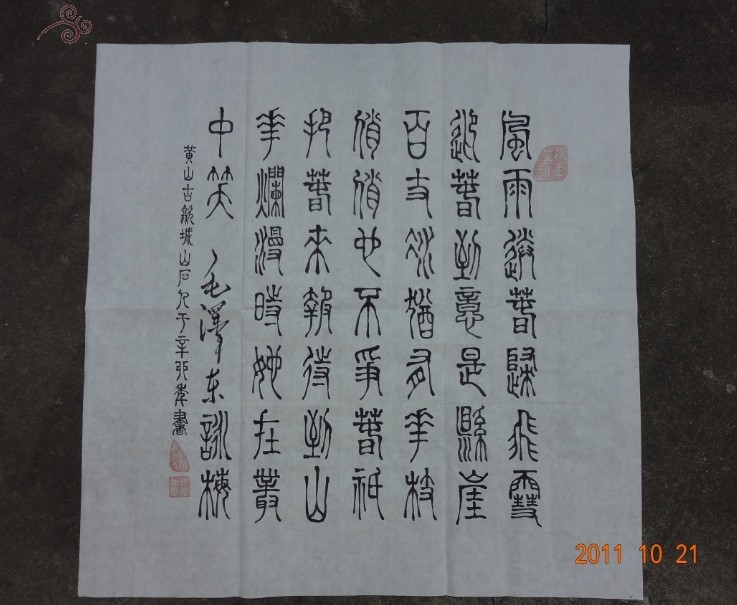 風雨送春歸飛雪
迎春到意是縣崖
百丈冰猶有花枝
俏俏也不爭春祇
把春來報待到山
花爛漫時她在叢
中笑 毛澤東詠梅
黄山古城山石于辛卯年書
2011 10 21